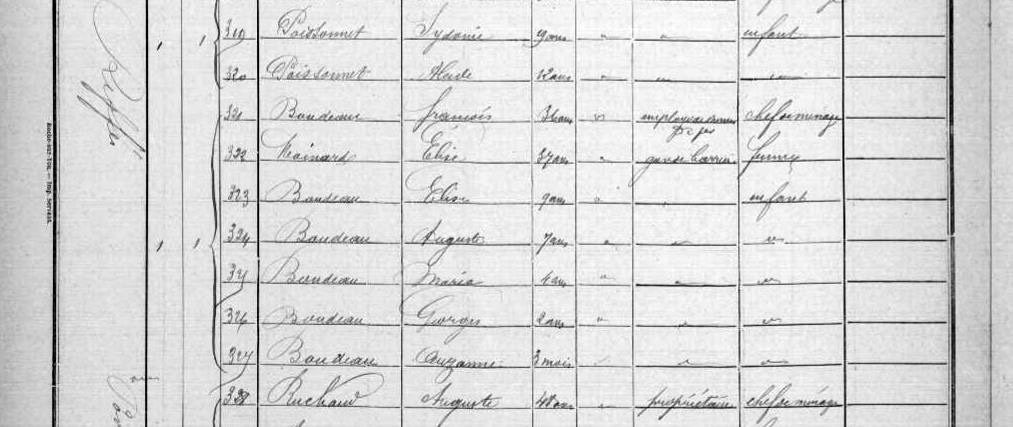 319 Poissonnet Sydonie 9 ans " " enfant
320 Poissonnet 12 ans " " "
1 1 321 Boudeau françois 36 ans " employé chemin de fer chef de ménage
322 Moinard Élise 37 ans " garde barrière femme
323 Boudeau Élise 9 ans " " enfant
324 Boudeau Auguste 7 ans " " "
325 Boudeau Maria 4 ans " " "
326 Boudeau Georges 2 ans " " "
327 Boudeau Suzanne 3 mois " " "
328 Auguste 48 ans " propriétaire chef de ménage
Roche-sur-Yon. — Imp. Servant.